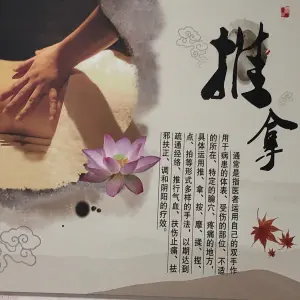 推拿
通常是指医者运用自己的双手作
用于病患的体表、受伤的部位、不适
的所在、特定的腧穴、疼痛的地方，
具体运用推、拿、按、摩、揉、捏、
点、拍等形式多样的手法，以期达到
疏通经络、推行气血、扶伤止痛、祛
邪扶正、调和阴阳的疗效。